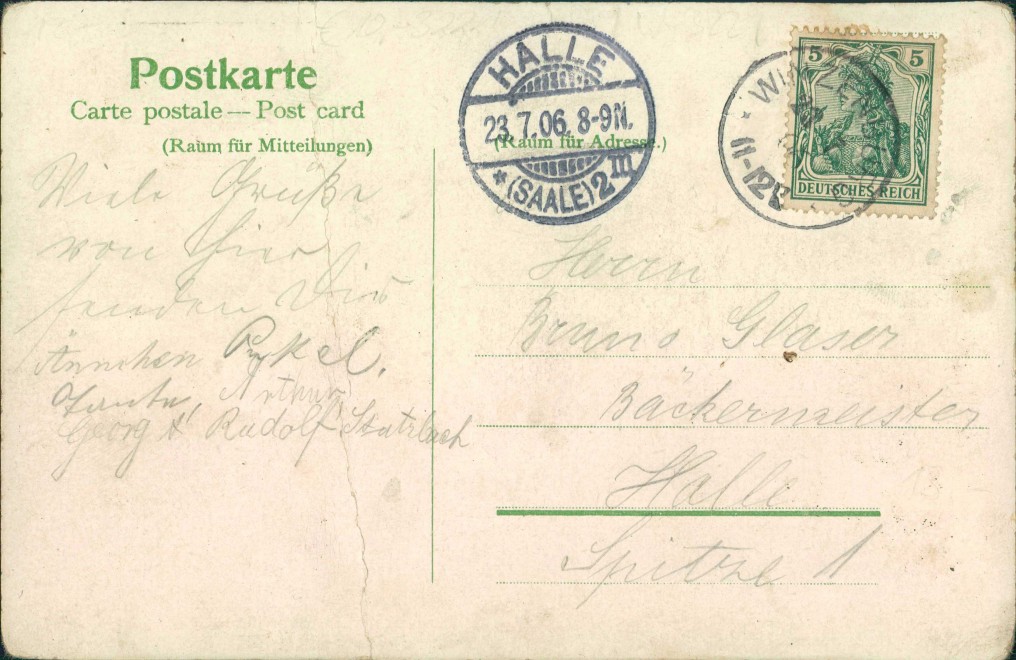 Postkarte
Carte postale — Post card
(Raum für Mitteilungen)
(Raum für Adresse.)
HALLE
23.7.06. 8-9N.
* (SAALE) 2 III
* Wi
11-12V
5 5
DEUTSCHES REICH
Viele Grüße
von hier
senden Dir
Ännchen
Tante, Arthur,
Georg u. Rudolf
Herrn
Bruno Glaser
Bäckermeister
Halle
Spitze 1